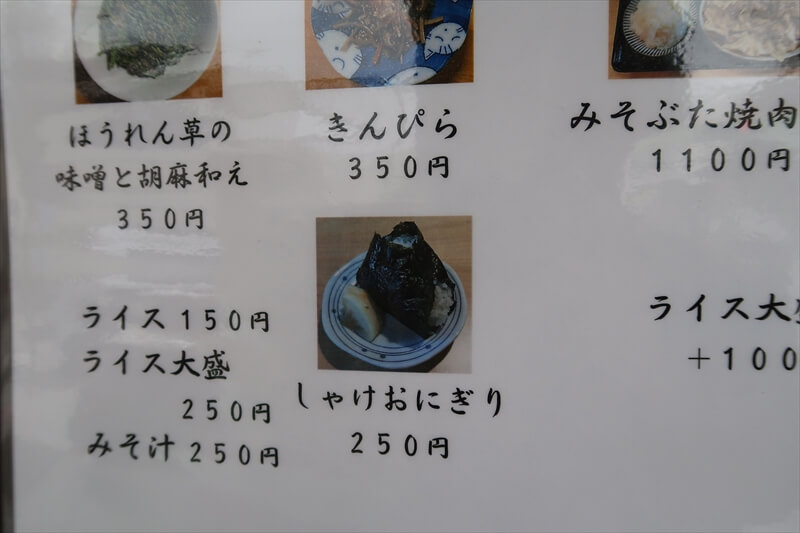 ほうれん草の
味噌と胡麻和え
350円
きんぴら
350円
みそぶた焼肉
1100円
ライス150円
ライス大盛
250円
みそ汁250円
しゃけおにぎり
250円
ライス大
+100